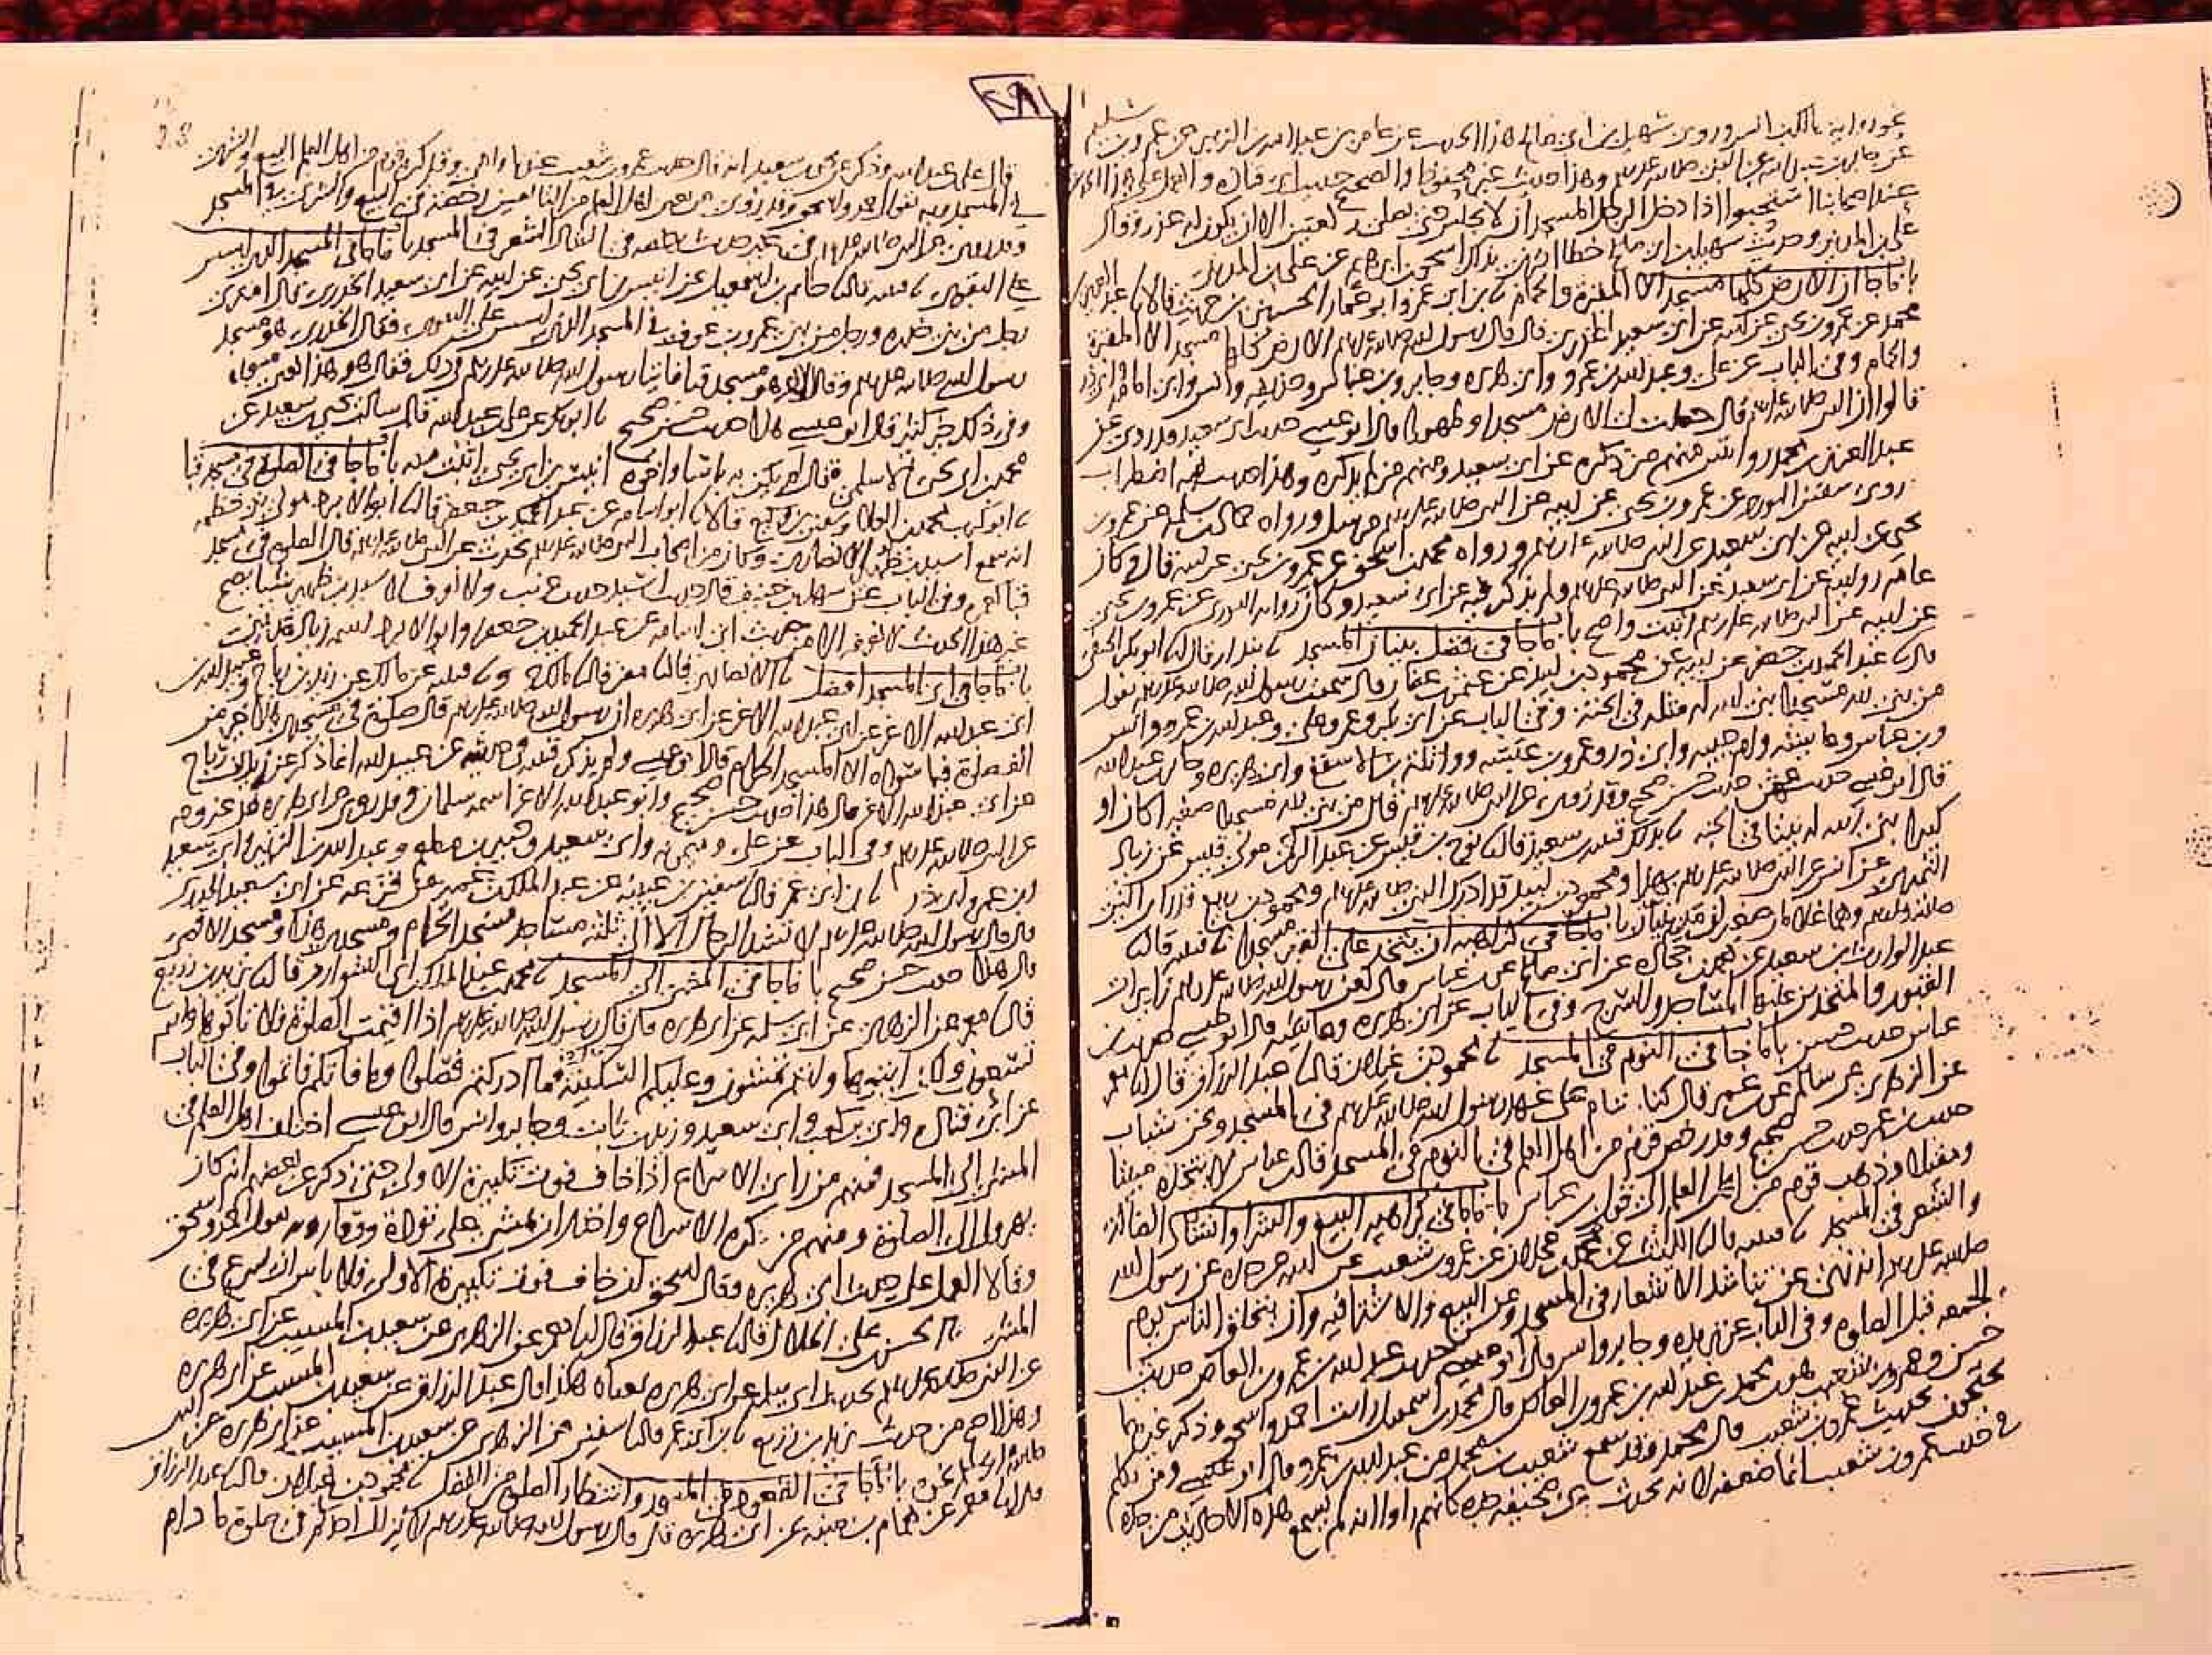 نحو رواية مالك بن انس وروى سهيل بن ابي صالح هذا الحديث عن عامر بن عبد الله بن الزبير عن عمرو بن سليم
عن جابر بن عبد الله عن النبي صلى الله عليه وسلم وهذا حديث غير محفوظ والصحيح حديث ابي قتادة والعمل على هذا الحديث
عند اصحابنا استحبوا اذا دخل الرجل المسجد ان لا يجلس حتى يصلي ركعتين الا ان يكون له عذر وقال
علي بن المديني وحديث سهيل بن ابي صالح خطا اخبرني بذلك اسحق بن ابرهيم عن علي بن المديني
باب ما جا ان الارض كلها مسجد الا المقبرة والحمام نا ابن ابي عمر وابو عمار الحسين بن حريث قالا نا عبد العزيز بن
محمد عن عمرو بن يحيى عن ابيه عن ابي سعيد الخدري قال قال رسول الله صلى الله عليه وسلم الارض كلها مسجد الا المقبرة
والحمام وفي الباب عن علي وعبد الله بن عمرو وابي هريرة وجابر وابن عباس وحذيفة وانس وابي امامة وابي ذر
قالوا ان النبي صلى الله عليه وسلم قال جعلت لي الارض مسجدا وطهورا قال ابو عيسى حديث ابي سعيد قد روي عن
عبد العزيز بن محمد روايتين منهم من ذكره عن ابي سعيد ومنهم من لم يذكره وهذا حديث فيه اضطراب
روى سفين الثوري عن عمرو بن يحيى عن ابيه عن النبي صلى الله عليه وسلم مرسل ورواه حماد بن سلمة عن عمرو بن
يحيى عن ابيه عن ابي سعيد عن النبي صلى الله عليه وسلم ورواه محمد بن اسحق عن عمرو بن يحيى عن ابيه قال وكان
عامة روايته عن ابي سعيد عن النبي صلى الله عليه وسلم ولم يذكر فيه عن ابي سعيد وكان رواية الثوري عن عمرو بن يحيى
عن ابيه عن النبي صلى الله عليه وسلم اثبت واصح باب ما جا في فضل بنيان المسجد نا بندار قال نا ابو بكر الحنفي
قال نا عبد الحميد بن جعفر عن ابيه عن محمود بن لبيد عن عثمن بن عفان قال سمعت رسول الله صلى الله عليه وسلم يقول
من بنى لله مسجدا بنى الله له مثله في الجنة وفي الباب عن ابي بكر وعمر وعلي وعبد الله بن عمرو وانس
وابن عباس وعايشة وام حبيبة وابي ذر وعمرو بن عبسة وواثلة بن الاسقع وابي هريرة وجابر بن عبد الله
قال ابو عيسى حديث عثمن حديث حسن صحيح وقد روي عن النبي صلى الله عليه وسلم قال من بنى لله مسجدا صغيرا كان او
كبيرا بنى الله له بيتا في الجنة نا بذلك قتيبة بن سعيد قال نا نوح بن قيس عن عبد الرحمن مولى قيس عن زياد
النميري عن انس عن النبي صلى الله عليه وسلم بهذا ومحمود بن لبيد قد ادرك النبي صلى الله عليه وسلم ومحمود بن ربيع قد راى النبي
صلى الله عليه وسلم وهما غلامان صغيران مدنيان باب ما جا في كراهية ان يتخذ على القبر مسجدا نا قتيبة قال نا
عبد الوارث بن سعيد عن محمد بن جحادة عن ابي صالح عن ابن عباس قال لعن رسول الله صلى الله عليه وسلم زايرات
القبور والمتخذين عليها المساجد والسرج وفي الباب عن ابي هريرة وعايشة قال ابو عيسى حديث ابن
عباس حديث حسن باب ما جا في النوم في المسجد نا محمود بن غيلان قال نا عبد الرزاق قال نا معمر
عن الزهري عن سالم عن ابن عمر قال كنا ننام على عهد رسول الله صلى الله عليه وسلم في المسجد ونحن شباب
حديث ابن عمر حديث حسن صحيح وقد رخص قوم من اهل العلم في النوم في المسجد قال ابن عباس لا يتخذه مبيتا
ومقيلا وذهب قوم من اهل العلم الى قول ابن عباس باب ما جا في كراهية البيع والشرا وانشاد الضالة
والشعر في المسجد نا قتيبة قال نا الليث عن محمد بن عجلان عن عمرو بن شعيب عن ابيه عن جده عن رسول الله
صلى الله عليه وسلم انه نهى عن تناشد الاشعار في المسجد وعن البيع والاشترا فيه وان يتحلق الناس يوم
الجمعة قبل الصلوة وفي الباب عن بريدة وجابر وانس قال ابو عيسى حديث عبد الله بن عمرو بن العاص حديث
حسن وعمرو بن شعيب هو ابن محمد بن عبد الله بن عمرو بن العاص قال محمد بن اسمعيل رايت احمد واسحق وذكر غيرهما
يحتجون بحديث عمرو بن شعيب قال محمد وقد سمع شعيب بن محمد من عبد الله بن عمرو قال ابو عيسى ومن تكلم
في حديث عمرو بن شعيب انما ضعفه لانه يحدث عن صحيفة جده كانهم راوا انه لم يسمع هذه الاحاديث من جده
قال علي بن عبد الله وذكر عن يحيى بن سعيد انه قال حديث عمرو بن شعيب عندنا واهي وقد كره قوم من اهل العلم البيع والشرى
في المسجد وبه يقول احمد واسحق وقد روي عن بعض اهل العلم من التابعين رخصة في البيع والشرى في المسجد
وقد روي عن النبي صلى الله عليه وسلم في غير حديث رخصة في انشاد الشعر في المسجد باب ما جا في المسجد الذي اسس
على التقوى نا قتيبة قال نا حاتم بن اسمعيل عن انيس بن ابي يحيى عن ابيه عن ابي سعيد الخدري قال امترى
رجل من بني خدرة ورجل من بني عمرو بن عوف في المسجد الذي اسس على التقوى فقال الخدري هو مسجد
رسول الله صلى الله عليه وسلم وقال الاخر هو مسجد قبا فاتيا رسول الله صلى الله عليه وسلم في ذلك فقال هو هذا يعني مسجده
وفي ذلك خير كثير قال ابو عيسى هذا حديث حسن صحيح نا ابو بكر عن علي بن عبد الله قال سالت يحيى بن سعيد عن
محمد بن ابي يحيى الاسلمي فقال لم يكن به باسا واخوه انيس بن ابي يحيى اثبت منه باب ما جا في الصلوة في مسجد قبا
نا ابو كريب محمد بن العلا وسفين بن وكيع قالا نا ابو اسامة عن عبد الحميد بن جعفر قال نا ابو الابرد مولى بني خطمة
انه سمع اسيد بن ظهير الانصاري وكان من اصحاب النبي صلى الله عليه وسلم يحدث عن النبي صلى الله عليه وسلم قال الصلوة في مسجد
قبا كعمرة وفي الباب عن سهل بن حنيف قال حديث اسيد حديث غريب ولا نعرف لاسيد بن ظهير شيا يصح
غير هذا الحديث لا نعرفه الا من حديث ابي اسامة عن عبد الحميد بن جعفر وابو الابرد اسمه زياد مديني
باب ما جا في اي المسجد افضل نا الانصاري قال نا معن قال نا مالك ونا قتيبة عن مالك عن زيد بن رباح وعبيد الله
ابن ابي عبد الله الاغر عن ابي عبد الله الاغر عن ابي هريرة ان رسول الله صلى الله عليه وسلم قال صلوة في مسجدي هذا خير من
الف صلوة فيما سواه الا المسجد الحرام قال ابو عيسى ولم يذكر قتيبة في حديثه عن عبيد الله انما ذكر عن زيد بن رباح
عن ابي عبد الله الاغر قال هذا حديث حسن صحيح وابو عبد الله الاغر اسمه سلمان وقد روي عن ابي هريرة من غير وجه
عن النبي صلى الله عليه وسلم وفي الباب عن علي وميمونة وابي سعيد وجبير بن مطعم وعبد الله بن الزبير
ابن عمر وابي ذر نا ابن ابي عمر قال نا سفين بن عيينة عن عبد الملك بن عمير عن قزعة عن ابي سعيد الخدري
قال قال رسول الله صلى الله عليه وسلم لا تشد الرحال الا الى ثلثة مساجد مسجد الحرام ومسجدي هذا ومسجد الاقصى
قال هذا حديث حسن صحيح باب ما جا في المشي الى المسجد نا محمد بن عبد الملك بن ابي الشوارب قال نا يزيد بن زريع
قال نا معمر عن الزهري عن ابي سلمة عن ابي هريرة قال قال رسول الله صلى الله عليه وسلم اذا اقيمت الصلوة فلا تاتوها وانتم
تسعون ولكن ايتوها وانتم تمشون وعليكم السكينة فما ادركتم فصلوا وما فاتكم فاتموا وفي الباب
عن ابي قتادة وابي بن كعب وابي سعيد وزيد بن ثابت وجابر وانس قال ابو عيسى اختلف اهل العلم في
المشي الى المسجد فمنهم من راى الاسراع اذا خاف فوت تكبيرة الاولى حتى ذكر عن بعضهم انه كان
يهرول الى الصلوة ومنهم من كره الاسراع واختار ان يمشي على تؤدة ووقار وبه يقول احمد واسحق
وقالا العمل على حديث ابي هريرة وقال اسحق ان خاف فوت تكبيرة الاولى فلا باس ان يسرع في
المشي نا الحسن بن علي الخلال قال نا عبد الرزاق قال نا معمر عن الزهري عن سعيد بن المسيب عن ابي هريرة
عن النبي صلى الله عليه وسلم نحو حديث ابي سلمة عن ابي هريرة بمعناه هكذا قال عبد الرزاق عن سعيد بن المسيب عن ابي هريرة
وهذا اصح من حديث يزيد بن زريع نا ابن ابي عمر قال نا سفين عن الزهري عن سعيد بن المسيب عن ابي هريرة عن النبي
صلى الله عليه وسلم نحوه باب ما جا في القعود في المسجد وانتظار الصلوة من الفضل نا محمود بن غيلان قال نا عبد الرزاق
قال نا معمر عن همام بن منبه عن ابي هريرة قال قال رسول الله صلى الله عليه وسلم لا يزال احدكم في صلوة ما دام